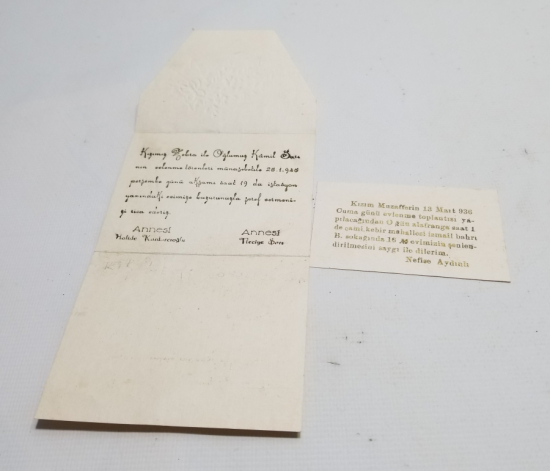 Kızımız Zehra ile Oğlumuz Kâmil
nın evlenme törenleri münasebetile 28.1.943
perşembe günü Akşamı saat 19 da istasyon
yanındaki evimize buyurmanızla şeref vermeni
zi rica ederiz.
Annesi Annesi
Kızım Muzafferin 13 Mart 936
Cuma günü evlenme toplantisi ya-
pılacağınden O gün alafranga saat 1
de cami kebir mahallesi ismail bahri
B. sokağında 15 № evimizin şenlen-
dirilmesini saygı ile dilerim.
Nefise Aydınlı